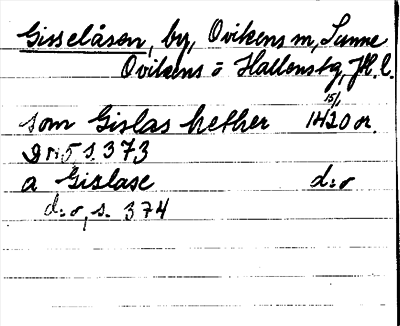 Gisselåsen, by, Ovikens m, Sunne
Ovikens o Hallens tg, Jtl. l.
15/1
som Gislas hether 1420 or.
s. 373
a Gislase d:o
d:o, s. 374